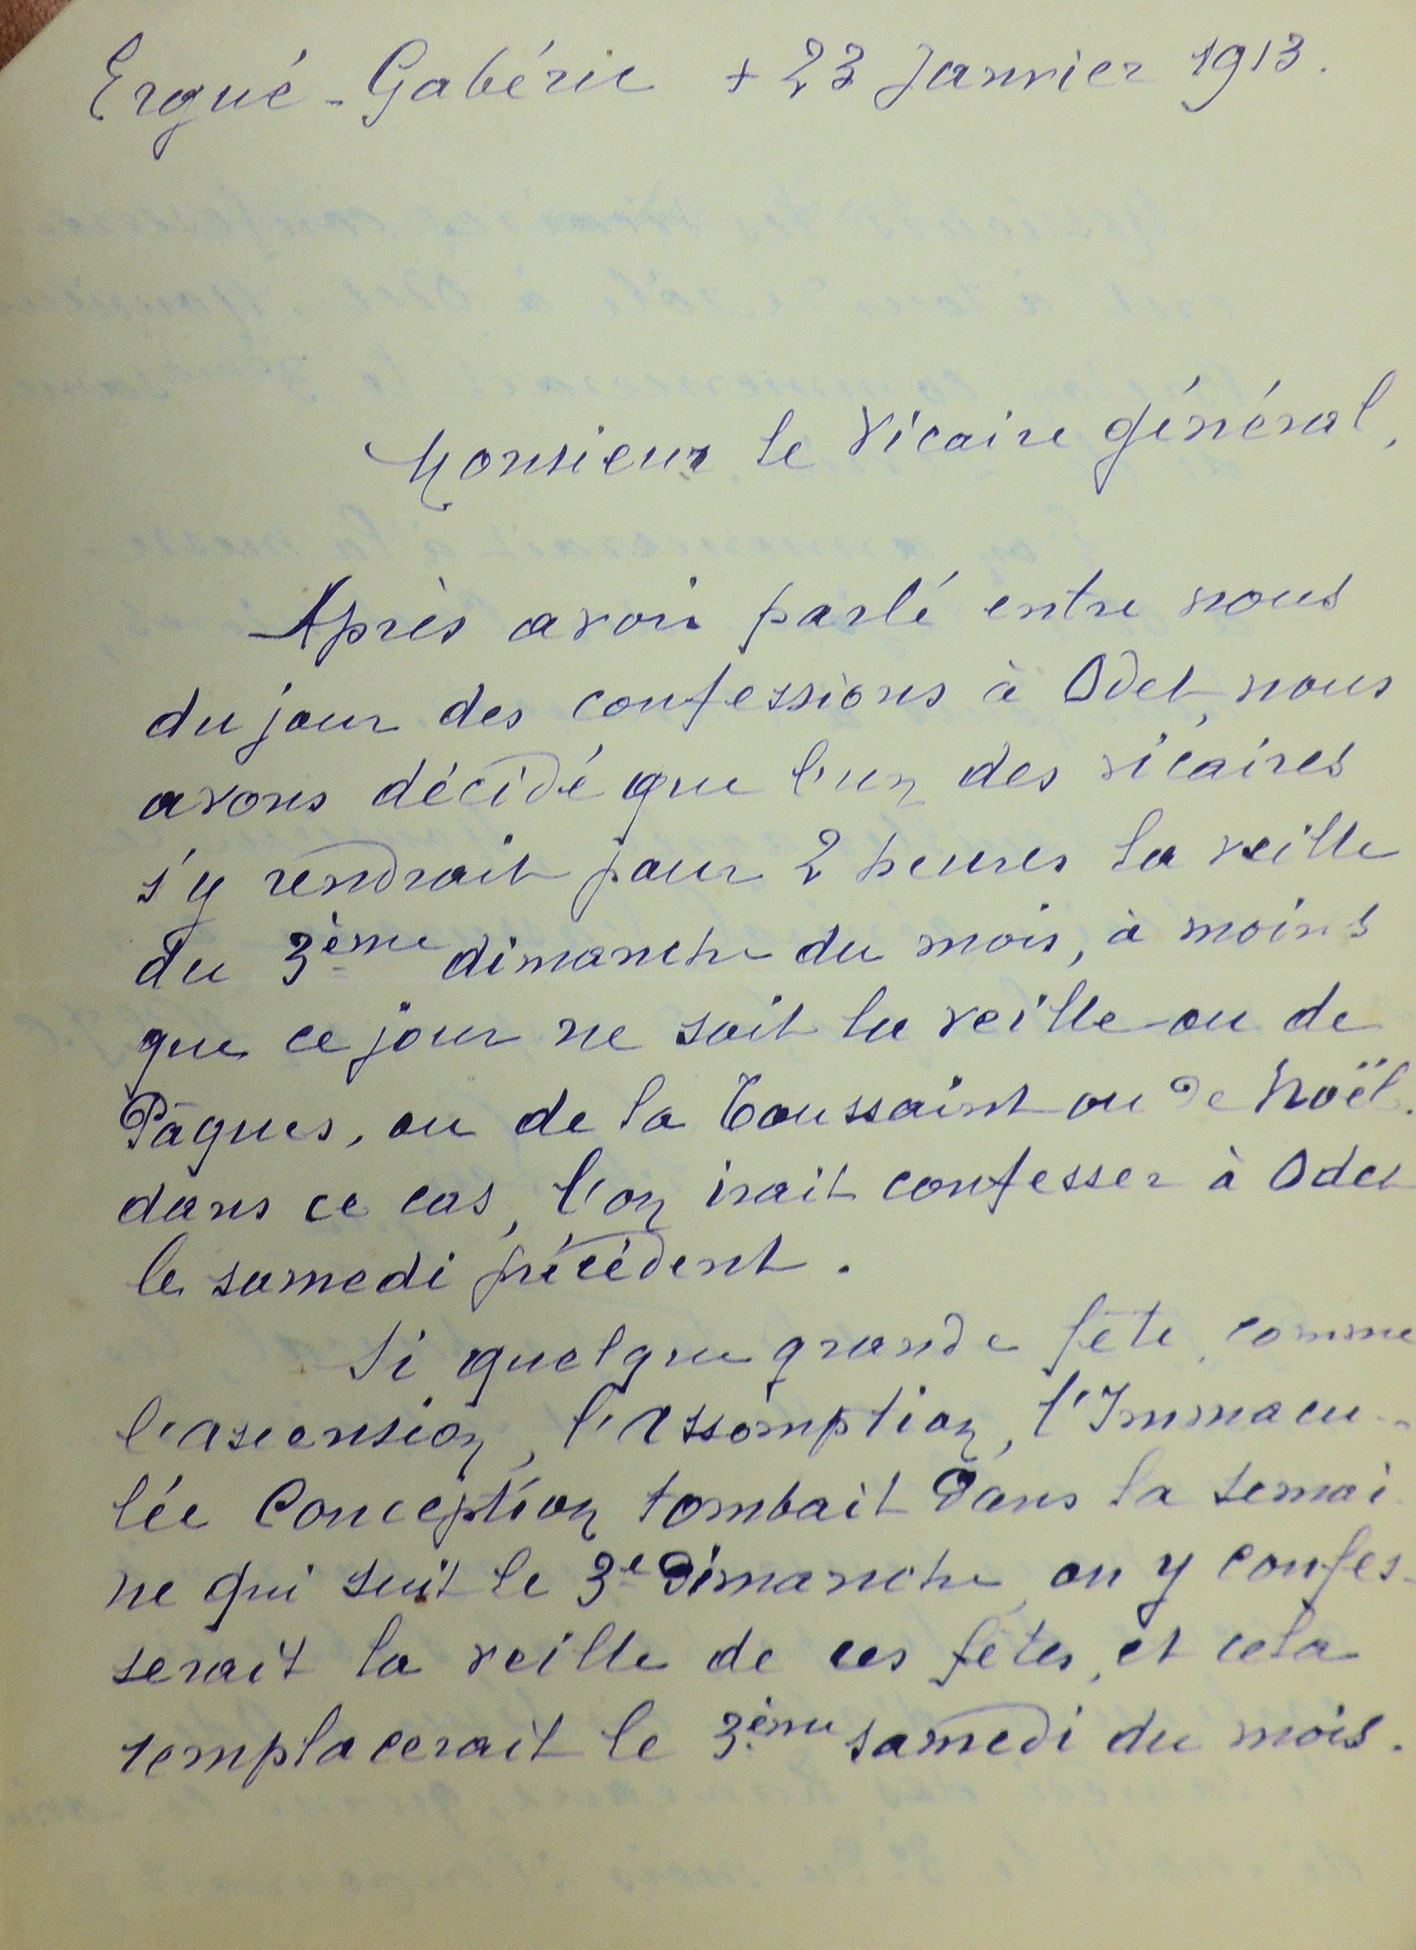 Ergué-Gabéric + 23 Janvier 1913.
Monsieur le Vicaire général,
Après avoir parlé entre nous
du jour des confessions à Odet, nous
avons décidé que l'un des vicaires
s'y rendrait pour 2 heures la veille
du 3ème dimanche du mois, à moins
que ce jour ne soit la veille ou de
Pâques, ou de la Toussaint ou de Noël.
dans ce cas, l'on irait confesser à Odet
le samedi précédent.
Si quelque grande fête, comme
l'ascension, l'Assomption, l'Immacu-
lée Conception tombait dans la semai-
ne qui suit le 3e dimanche, on y confes-
serait la veille de ces fêtes, et cela
remplacerait le 3ème samedi du mois.